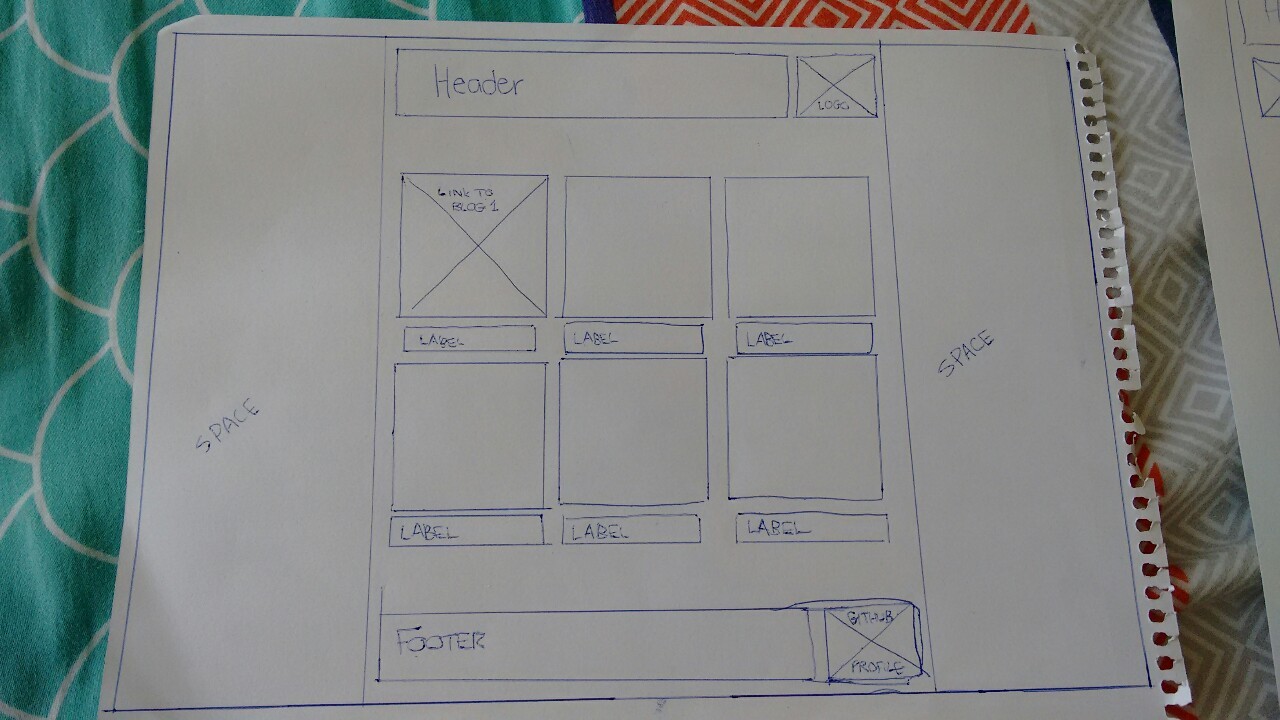 Header
LOGO
LINK TO
BLOG 1
LABEL
LABEL
LABEL
SPACE
SPACE
LABEL
LABEL
LABEL
FOOTER
GITHUB
PROFILE